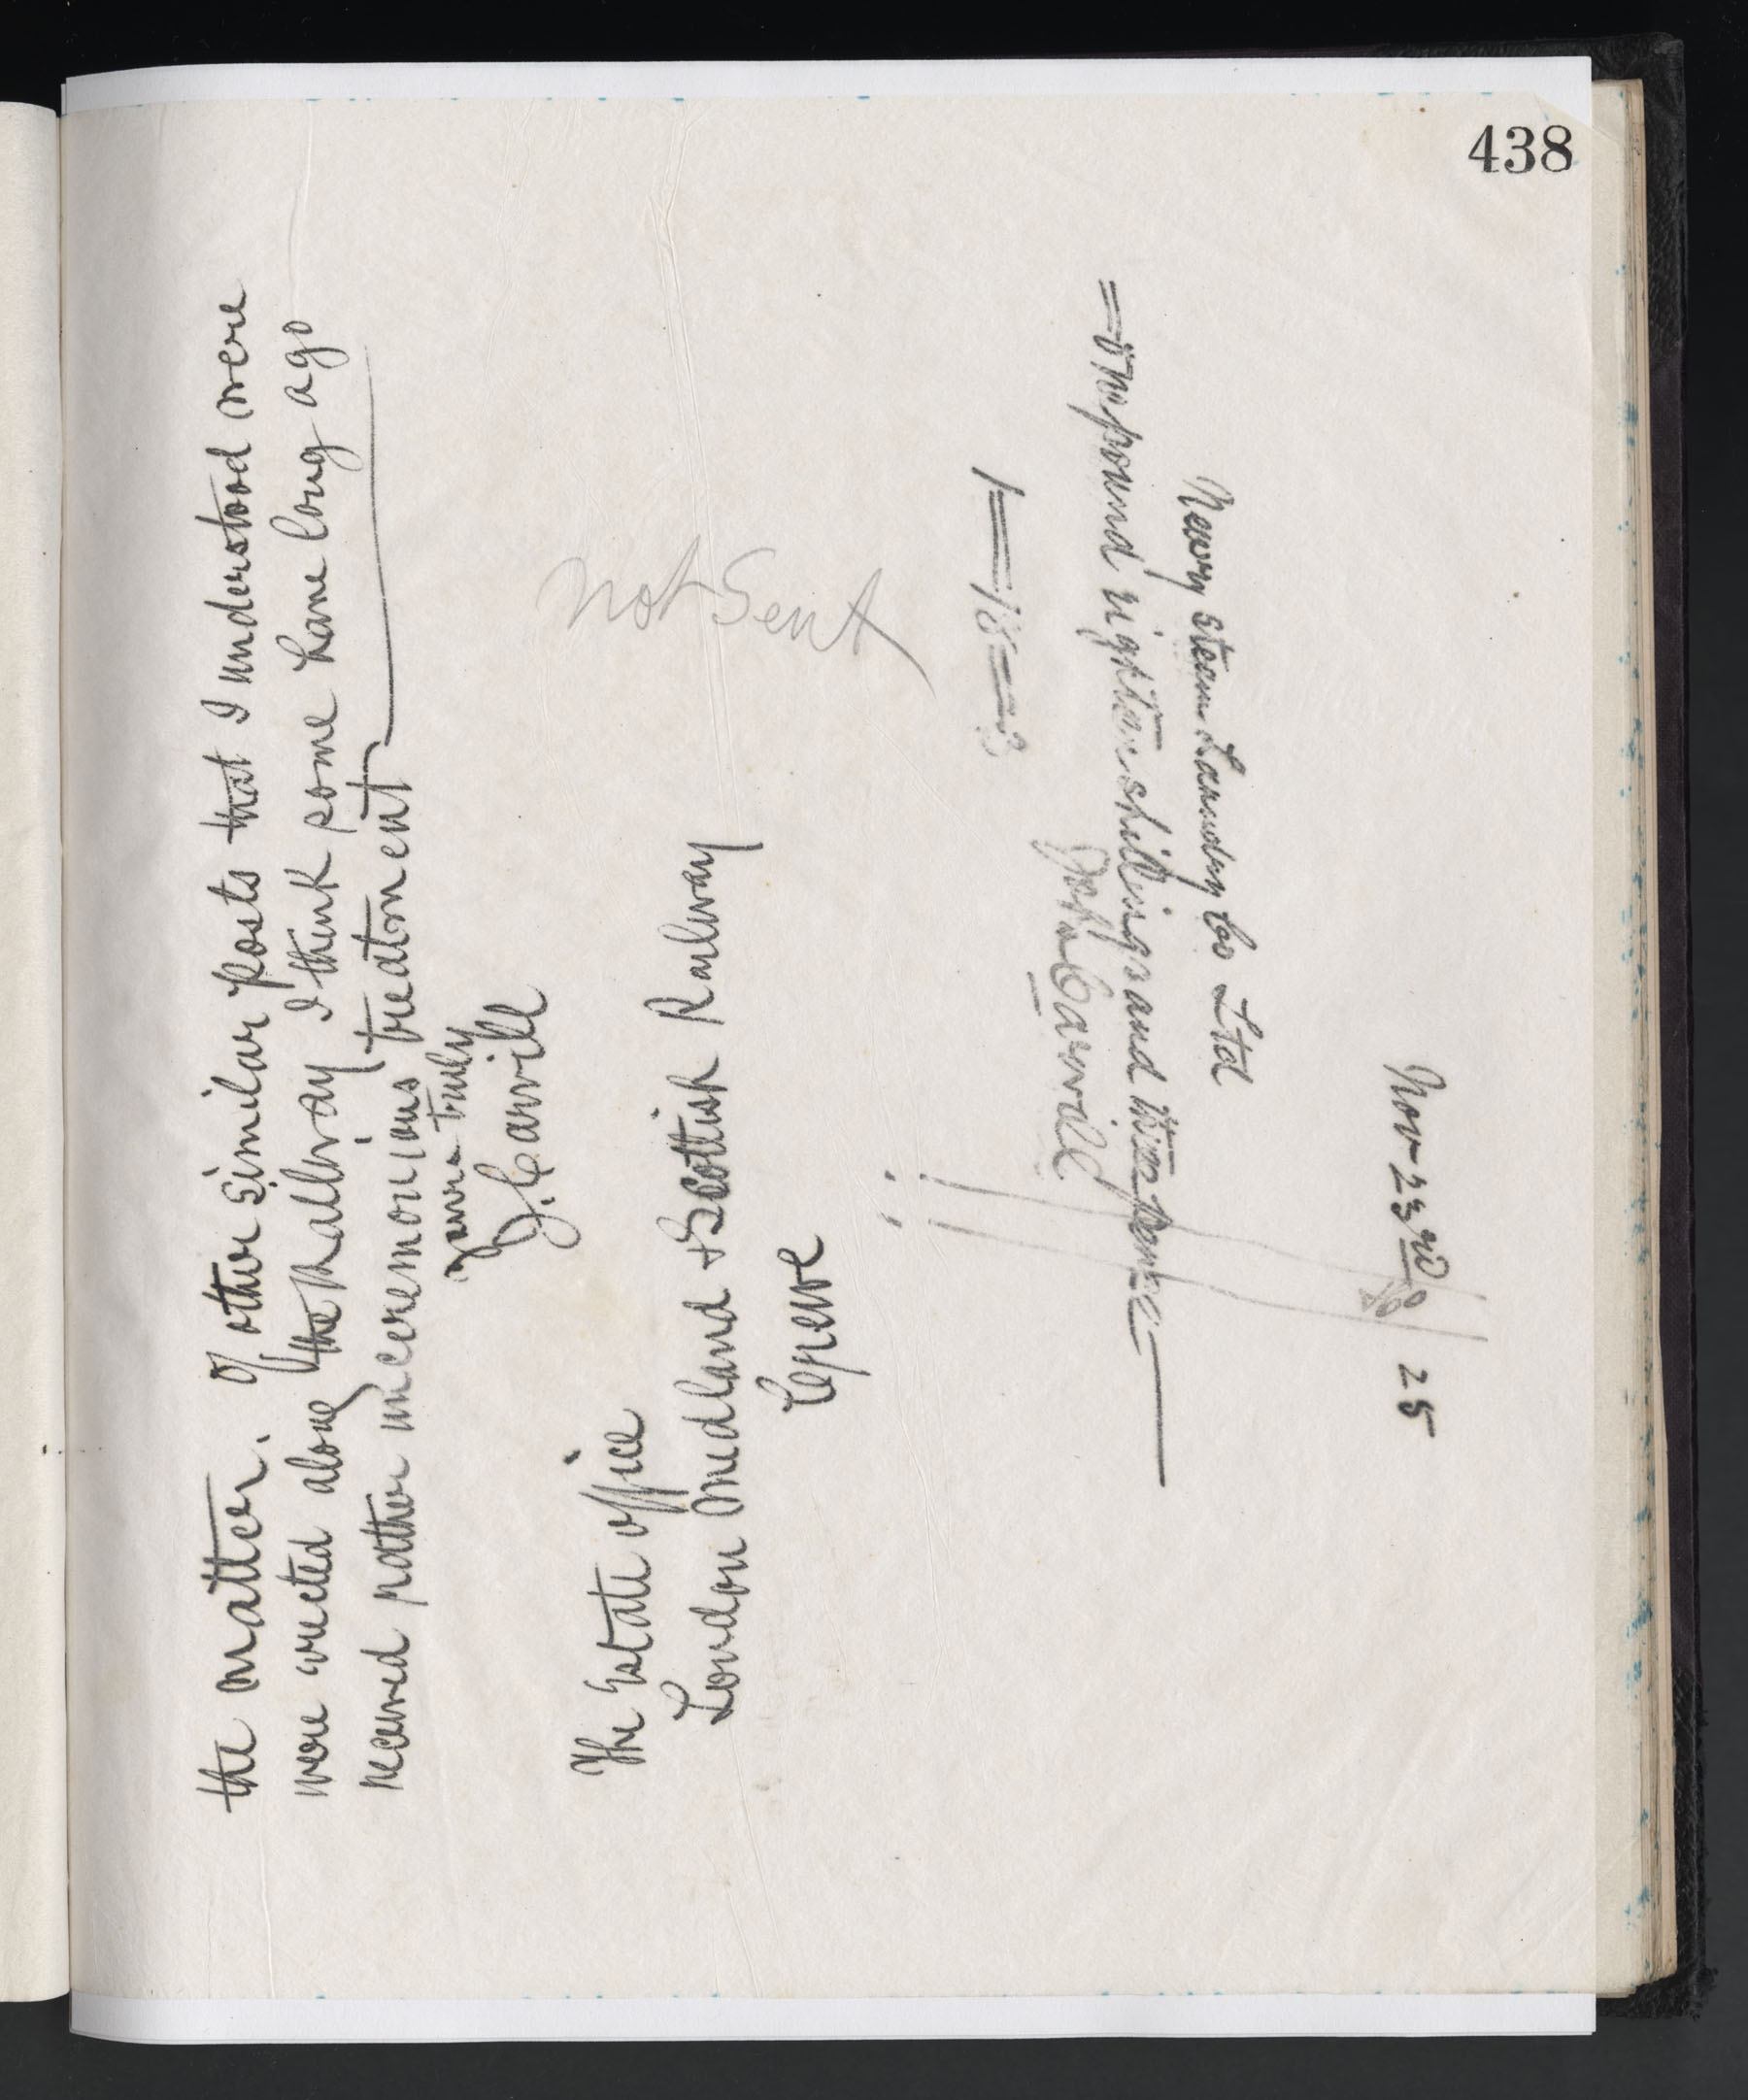 438
the matter. Of other similar posts that I understood were
were erected along the Railway I think some have long ago
received rather unceremonious treatment
yours truly
J. Carvill
Not Sent
The Estate office
London Midland & Scottish Railway
Nov 23rd 25
Newry Steam Laundry Co Ltd
= One pound eighteen shillings and three pence
Carvill
1=18=3